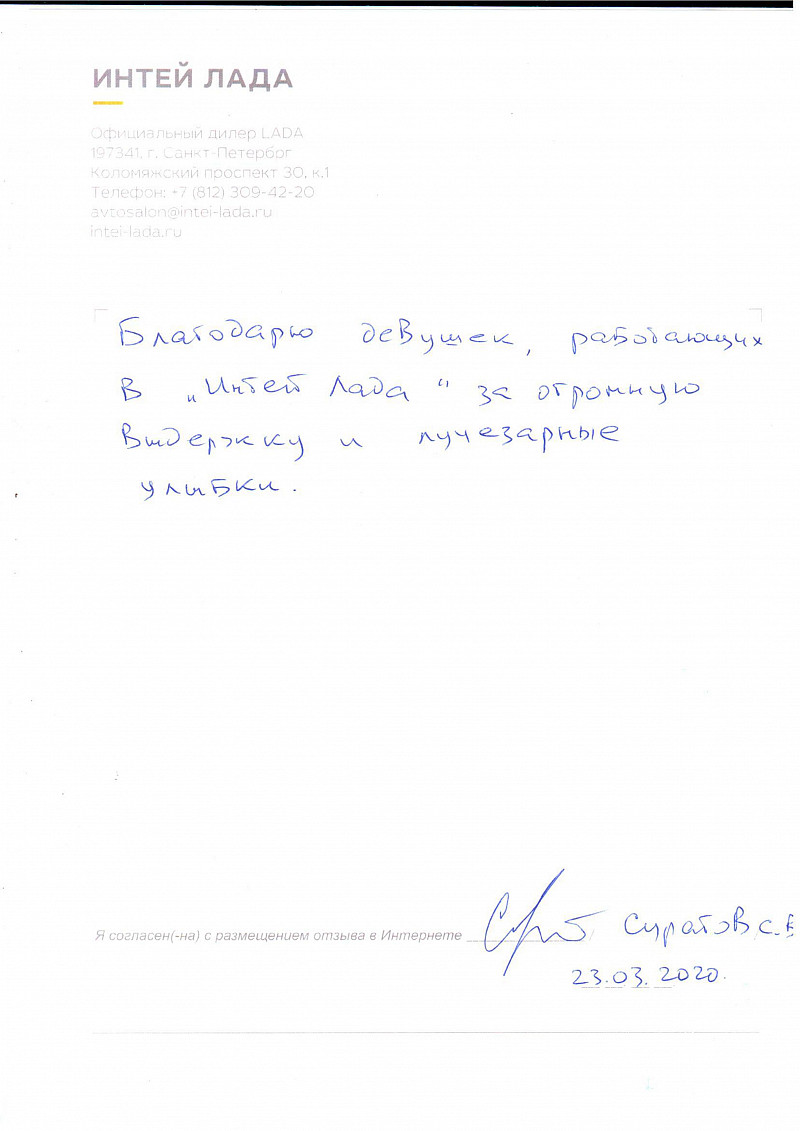 ИНТЕЙ ЛАДА
Официальный дилер LADA
197341, г. Санкт-Петербрг
Коломяжский проспект 30, к.1
Телефон: +7 (812) 309-42-20
avtosalon@intei-lada.ru
intei-lada.ru
Благодарю девушек, работающих
в „Интей Лада“ за огромную
выдержку и лучезарные
улыбки.
Я согласен(-на) с размещением отзыва в Интернете
Суратов С.В
23.03.2020.